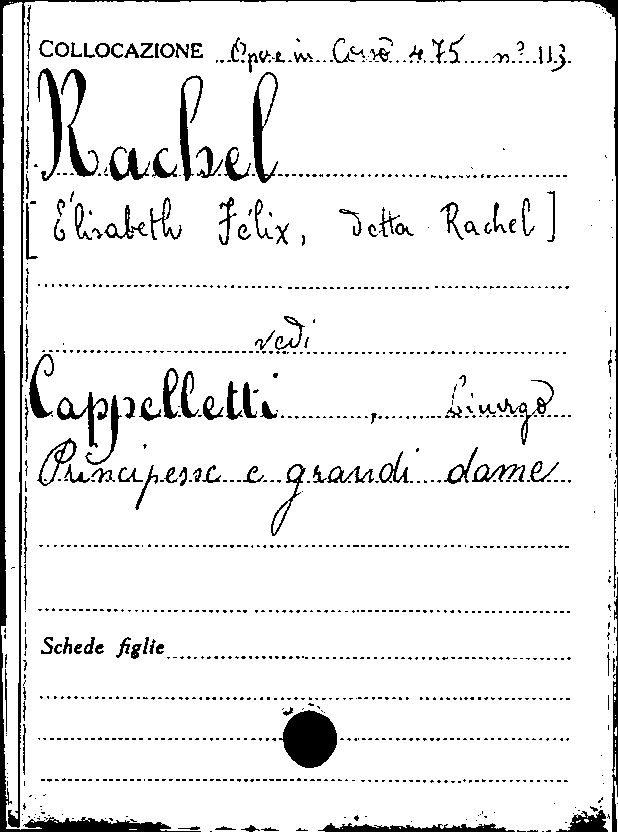 COLLOCAZIONE Opere in Corso 475 n° 113
Rachel
[Élisabeth Félix, detta Rachel]
vedi
Cappelletti, Licurgo
Principesse e grandi dame
Schede figlie